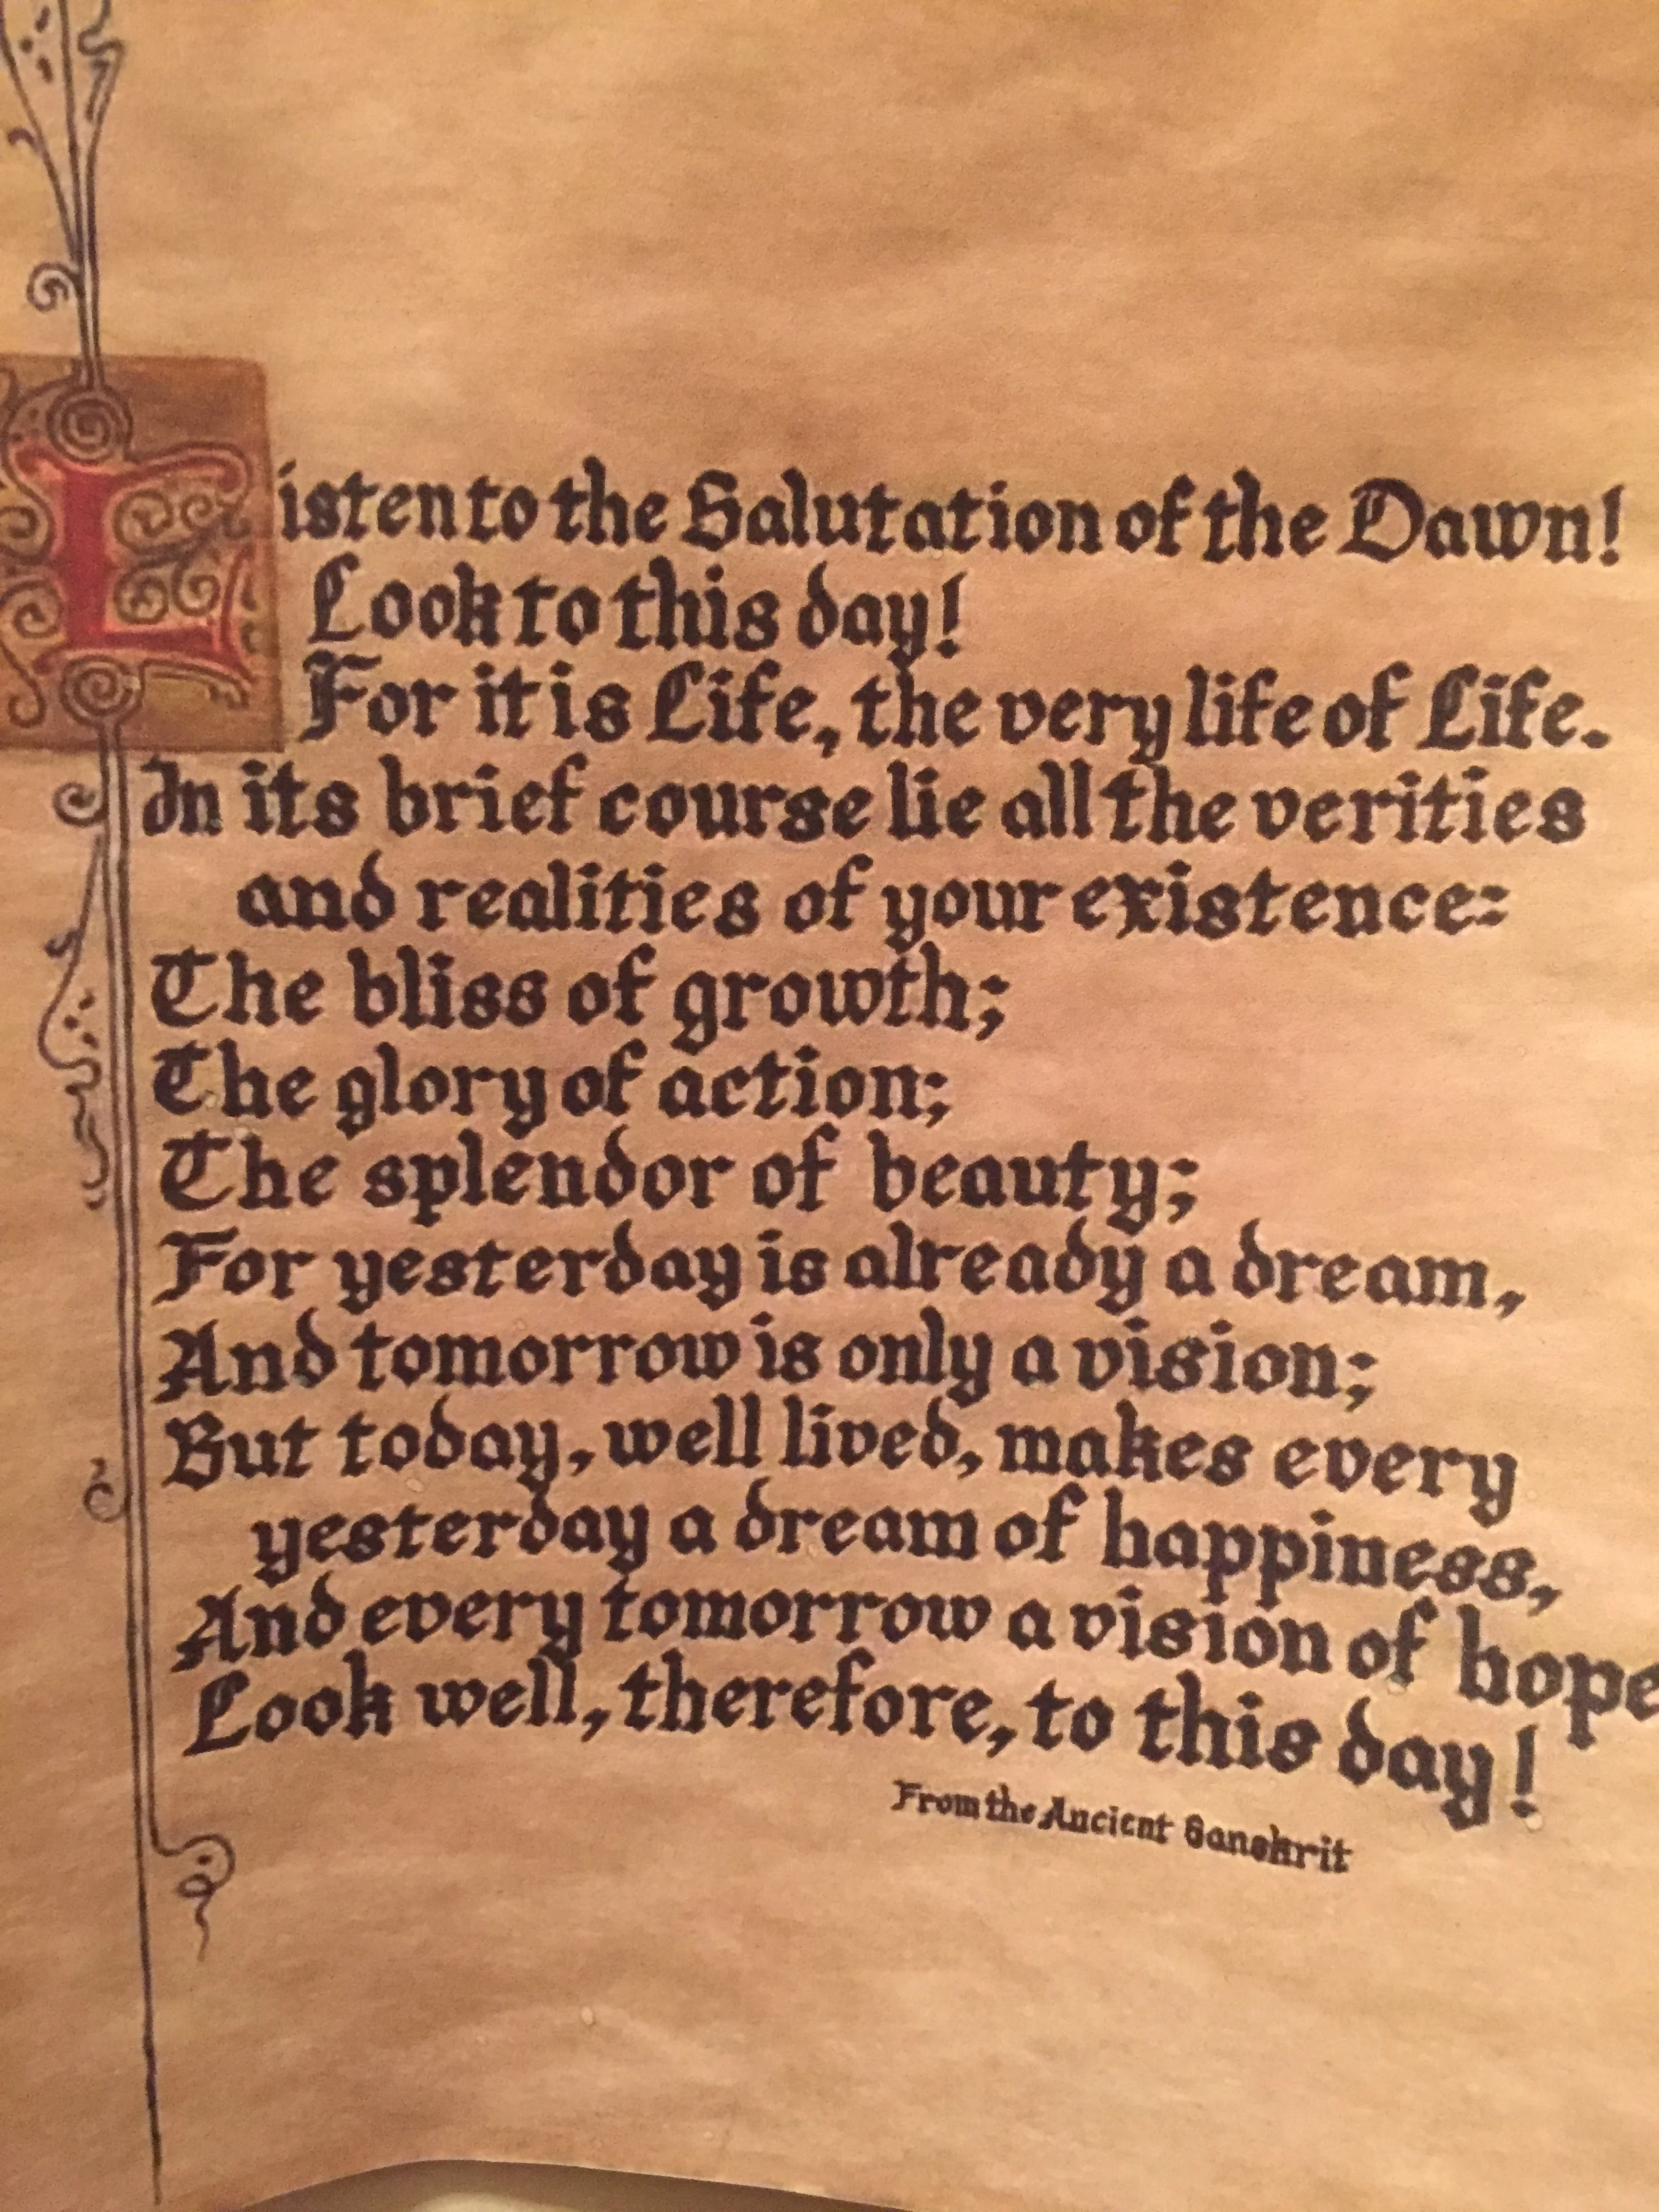 Listen to the Salutation of the Dawn!
Look to this day!
For it is Life, the very life of Life.
In its brief course lie all the verities
and realities of your existence:
The bliss of growth;
The glory of action;
The splendor of beauty;
For yesterday is already a dream,
And tomorrow is only a vision;
But today, well lived, makes every
yesterday a dream of happiness,
And every tomorrow a vision of hope
Look well, therefore, to this day!
From the Ancient Sanskrit